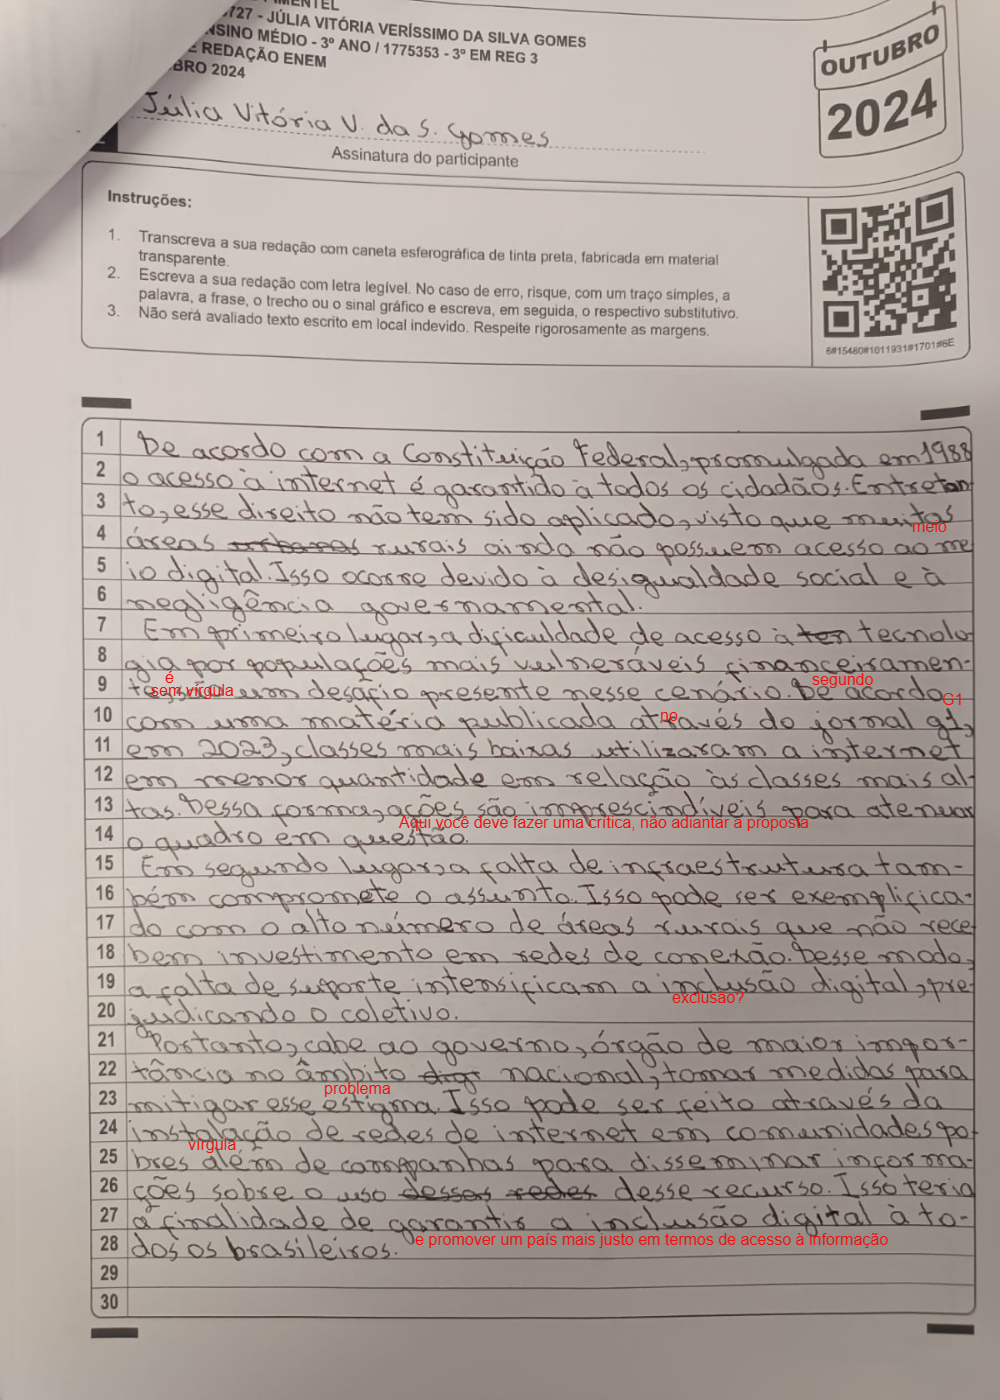 PIMENTEL
6727 - JÚLIA VITÓRIA VERÍSSIMO DA SILVA GOMES
ENSINO MÉDIO - 3º ANO / 1775353 - 3º EM REG 3
E REDAÇÃO ENEM
BRO 2024
OUTUBRO
2024
Júlia Vitória V. da S. Gomes
Assinatura do participante
Instruções:
1. Transcreva a sua redação com caneta esferográfica de tinta preta, fabricada em material
transparente.
2. Escreva a sua redação com letra legível. No caso de erro, risque, com um traço simples, a
palavra, a frase, o trecho ou o sinal gráfico e escreva, em seguida, o respectivo substitutivo.
3. Não será avaliado texto escrito em local indevido. Respeite rigorosamente as margens.
6#15480#1011931#1701#6E
1 De acordo com a Constituição Federal, promulgada em 1988
2 o acesso à internet é garantido à todos os cidadãos. Entretan
3 to, esse direito não tem sido aplicado, visto que muitas
meio
4 áreas urbanas rurais ainda não possuem acesso ao me
5 io digital. Isso ocorre devido à desigualdade social e à
6 negligência governamental.
7 Em primeiro lugar, a dificuldade de acesso à ten tecnolo
8 gia por populações mais vulneráveis financeiramen-
é
sem vírgula
segundo
9 te, são um desafio presente nesse cenário. De acordo
G1
10 com uma matéria publicada através do jornal g1,
no
11 em 2023, classes mais baixas utilizaram a internet
12 em menor quantidade em relação às classes mais al-
13 tas. Dessa forma, ações são imprescindíveis para atenuar
Aqui você deve fazer uma crítica, não adiantar a proposta
14 o quadro em questão.
15 Em segundo lugar, a falta de infraestrutura tam-
16 bém compromete o assunto. Isso pode ser exemplifica-
17 do com o alto número de áreas rurais que não rece
18 bem investimento em redes de conexão. Desse modo,
19 a falta de suporte intensificam a inclusão digital, pre
exclusão?
20 judicando o coletivo.
21 Portanto, cabe ao governo, órgão de maior impor-
22 tância no âmbito digi nacional, tomar medidas para
problema
23 mitigar esse estigma. Isso pode ser feito através da
24 instalação de redes de internet em comunidades po
vírgula
25 bres além de campanhas para disseminar informa-
26 ções sobre o uso dessas redes desse recurso. Isso teria
27 a finalidade de garantir a inclusão digital à to-
28 dos os brasileiros.
e promover um país mais justo em termos de acesso à informação
29
30